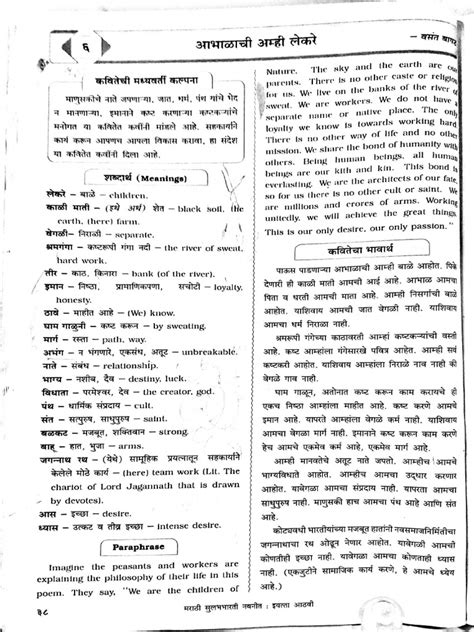 ६
आभाळाची अम्ही लेकरे
– वसंत बापट
कवितेची मध्यवर्ती कल्पना
माणुसकीचे नाते जपणाऱ्या, जात, धर्म, पंथ यांचे भेद
न मानणाऱ्या, इमानाने कष्ट करणाऱ्या कष्टकऱ्यांचे
मनोगत या कवितेत कवींनी मांडले आहे. सहकार्याने
कार्य करून आपणच आपला विकास करावा, हा संदेश
या कवितेतून दिला आहे.
शब्दार्थ (Meanings)
लेकरे – बाळे – children.
काळी माती – (इथे अर्थ) शेत – black soil, the
earth, (here) farm.
वेगळी– निराळी – separate.
श्रमगंगा – कष्टरूपी गंगा नदी – the river of sweat,
hard work.
तीर – काठ, किनारा – bank (of the river).
इमान – निष्ठा, प्रामाणिकपणा, सचोटी – loyalty,
honesty.
ठावे – माहीत आहे – (We) know.
घाम गाळुनी – कष्ट करून – by sweating.
मार्ग – रस्ता – path, way.
अभंग – न भंगणारे, एकसंध, अतूट – unbreakable.
नाते – संबंध – relationship.
भाग्य – नशीब, दैव – destiny, luck.
विधाता – परमेश्वर, देव – the creator, god.
पंथ – धार्मिक संप्रदाय – cult.
संत – सत्पुरुष, साधुपुरुष – saint.
बळकट – मजबूत, शक्तिवान – strong.
बाहू – हात, भुजा – arms.
जगन्नाथ रथ – (येथे) सामूहिक प्रयत्नातून सहकार्याने
केलेले मोठे कार्य – (here) team work (Lit. The
chariot of Lord Jagannath that is drawn
by devotees).
आस – इच्छा – desire.
ध्यास – उत्कट व तीव्र इच्छा – intense desire.
Paraphrase
Imagine the peasants and workers are
explaining the philosophy of their life in this
poem. They say, "We are the children of
Nature. The sky and the earth are our
parents. There is no other caste or religion
for us. We live on the banks of the river of
sweat. We are workers. We do not have a
separate name or native place. The only
loyalty we know is towards working hard
There is no other way of life and no other
mission. We share the bond of humanity with
others. Being human beings, all human
beings are our kith and kin. This bond is
everlasting. We are the architects of our fate,
so for us there is no other cult or saint. We
are millions and crores of arms. Working
unitedly, we will achieve the great things.
This is our only desire, our only passion."
कवितेचा भावार्थ
पाऊस पाडणाऱ्या आभाळाची आम्ही बाळे आहोत. पिके
देणारी ही काळी माती आमची आई आहे. आभाळ आमचा
पिता व धरती आमची माता आहे. आम्ही निसर्गाची बाळे
आहोत. याशिवाय आमची जात वेगळी नाही. याशिवाय
आमचा धर्म निराळा नाही.
श्रमरूपी गंगेच्या काठावरती आम्हां कष्टकऱ्यांची वस्ती
आहे. कष्ट आम्हांला गंगेसारखे पवित्र आहेत. आम्ही सर्व
कष्टकरी आहोत. याशिवाय आम्हांला निराळे नाव नाही की
वेगळे गाव नाही.
घाम गाळून, अतोनात कष्ट करून काम करायचे ही
एकच निष्ठा आम्हांला माहीत आहे. कष्ट करणे आमचे
इमान आहे. यापरते आमचे काम निराळे नाही. यावेगळा
आमचा मार्ग नाही. इमानाने कष्ट करून काम करणे
हेच आमचे एकमेव कर्म आहे. आमचा एकमेव मार्ग आहे.
आम्ही मानवतेचे अतूट नाते जपतो. आम्हीच आमचे
भाग्यविधाते आहोत. आम्हीच आमचा उद्धार करणार
आहोत. यावेगळा आमचा संप्रदाय नाही. यापरता आमचा
साधुपुरुष नाही. माणुसकी हाच आमचा पंथ आणि संत
आहे.
कोट्यवधी भारतीयांच्या मजबूत हातांनी नवसमाजनिर्मितीचा
जगन्नाथाचा रथ ओढून नेणार आहोत. यावेगळी आमची
कोणतीही इच्छा नाही. यावेगळा आमचा कोणताही ध्यास
नाही. (एकजुटीने सामाजिक कार्य करणे, हे आमचे ध्येय
आहे.)
३८
मराठी सुलभभारती नवनीत : इयत्ता आठवी